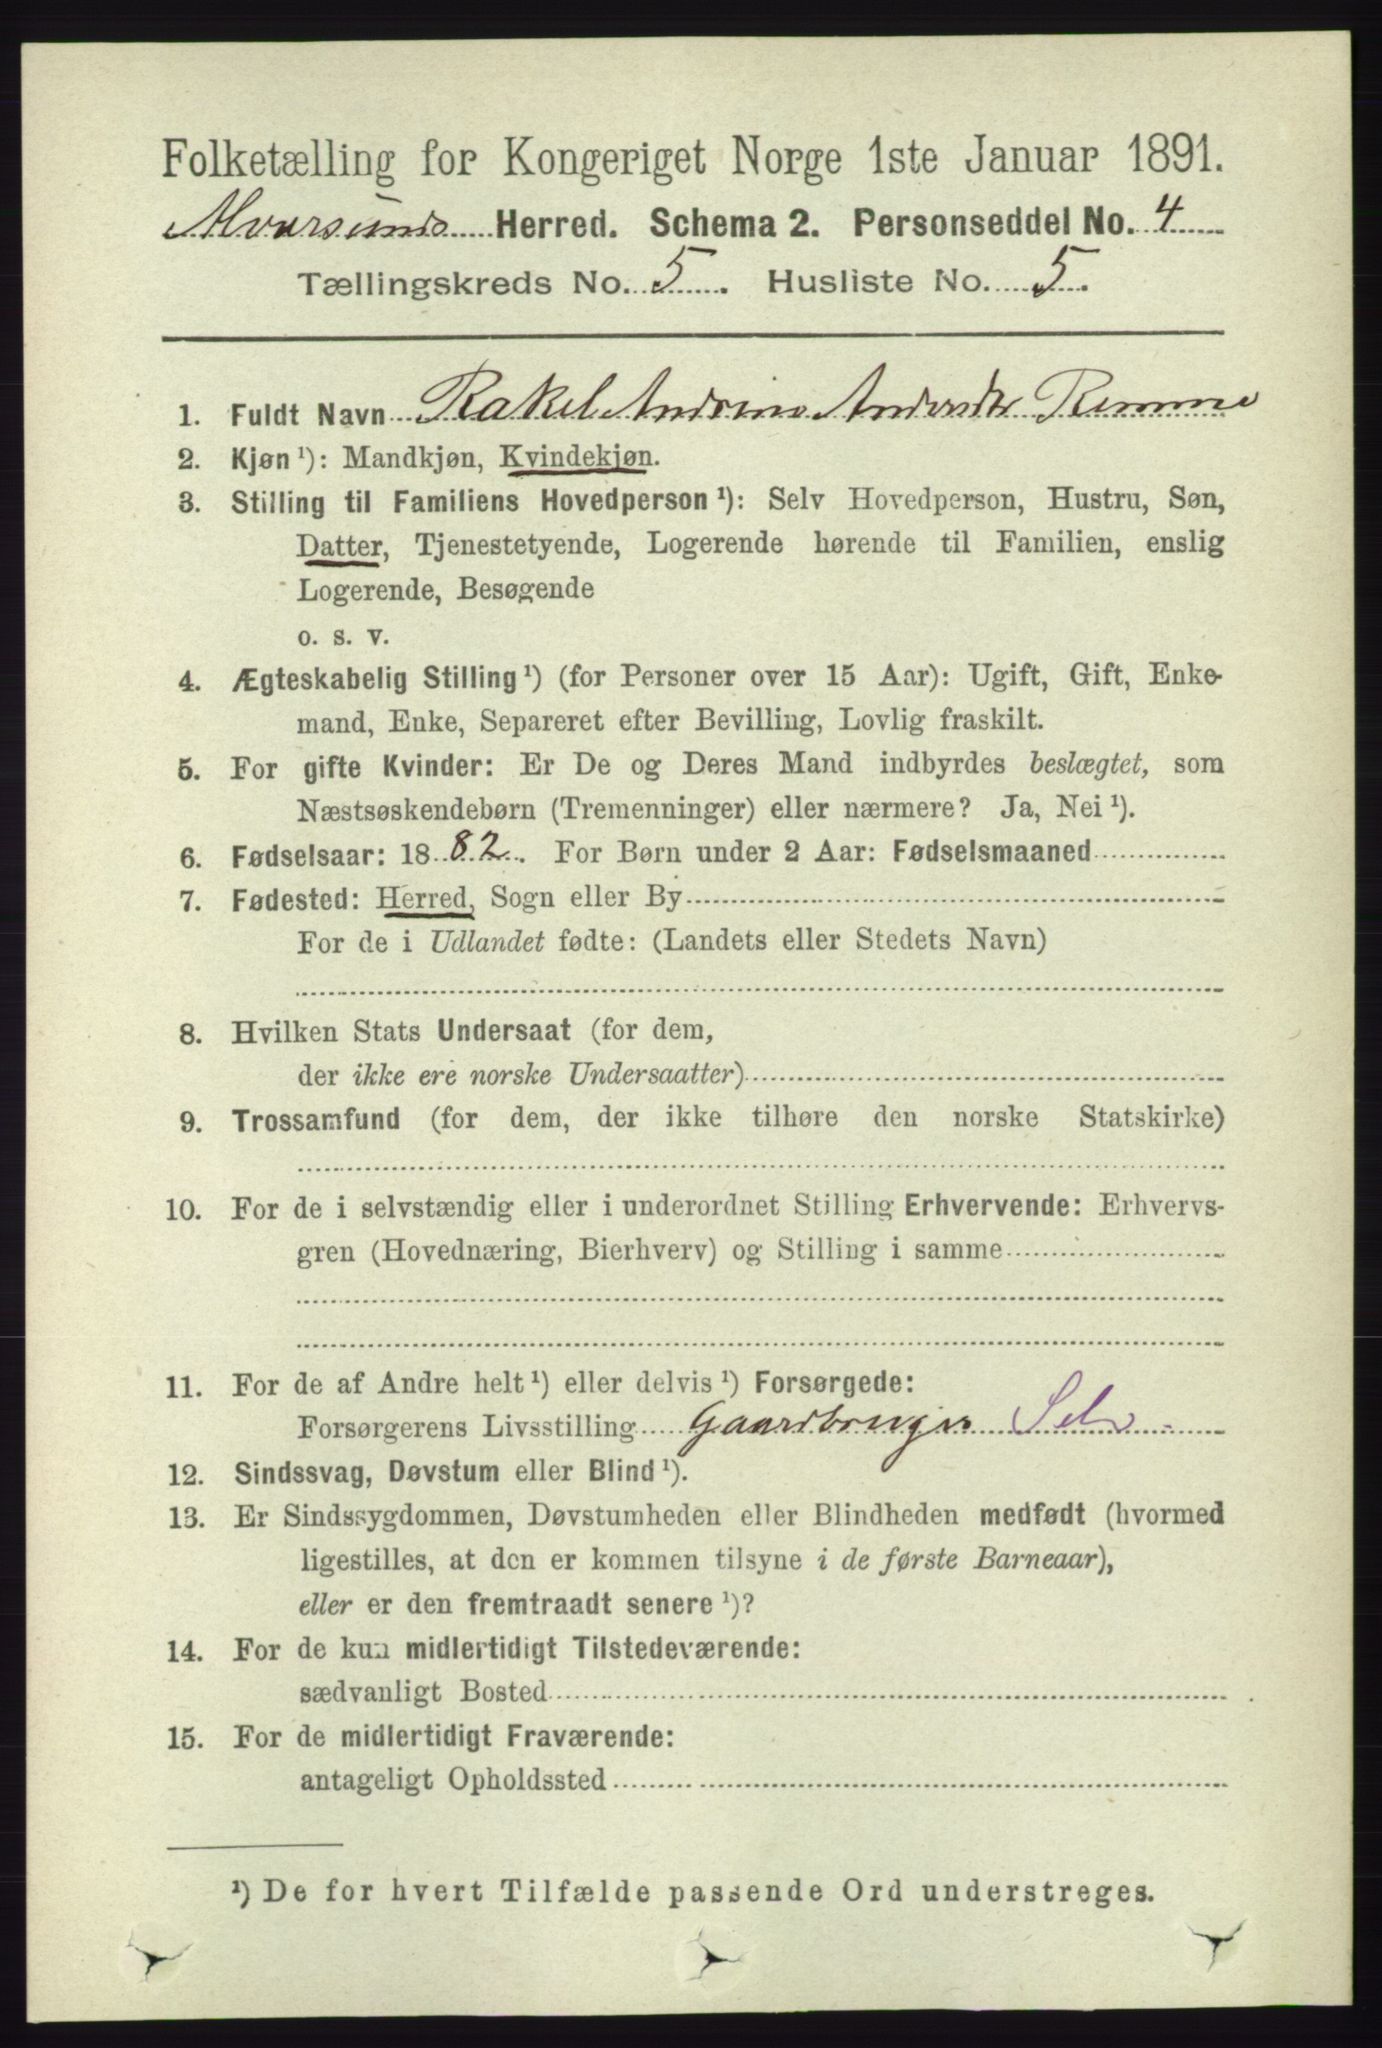 Folketælling for Kongeriget Norge 1ste Januar 1891.
Alversunds Herred. Schema 2. Personseddel No. 4
Tællingskreds No. 5. Husliste No. 5.
1. Fuldt Navn Rakel Andrine Andersdtr Remme
2. Kjøn ¹): Mandkjøn, Kvindekjøn.
3. Stilling til Familiens Hovedperson ¹): Selv Hovedperson, Hustru, Søn,
Datter, Tjenestetyende, Logerende hørende til Familien, enslig
Logerende, Besøgende
o. s. v.
4. Ægteskabelig Stilling ¹) (for Personer over 15 Aar): Ugift, Gift, Enke-
mand, Enke, Separeret efter Bevilling, Lovlig fraskilt.
5. For gifte Kvinder: Er De og Deres Mand indbyrdes beslægtet, som
Næstsøskendebørn (Tremenninger) eller nærmere? Ja, Nei ¹).
6. Fødselsaar: 1882. For Børn under 2 Aar: Fødselsmaaned
7. Fødested: Herred, Sogn eller By
For de i Udlandet fødte: (Landets eller Stedets Navn)
8. Hvilken Stats Undersaat (for dem,
der ikke ere norske Undersaatter)
9. Trossamfund (for dem, der ikke tilhøre den norske Statskirke)
10. For de i selvstændig eller i underordnet Stilling Erhvervende: Erhvervs-
gren (Hovednæring, Bierhverv) og Stilling i samme
11. For de af Andre helt ¹) eller delvis ¹) Forsørgede:
Forsørgerens Livsstilling Gaardbruger Selv
12. Sindssvag, Døvstum eller Blind ¹).
13. Er Sindssygdommen, Døvstumheden eller Blindheden medfødt (hvormed
ligestilles, at den er kommen tilsyne i de første Barneaar),
eller er den fremtraadt senere ¹)?
14. For de kun midlertidigt Tilstedeværende:
sædvanligt Bosted
15. For de midlertidigt Fraværende:
antageligt Opholdssted
¹) De for hvert Tilfælde passende Ord understreges.